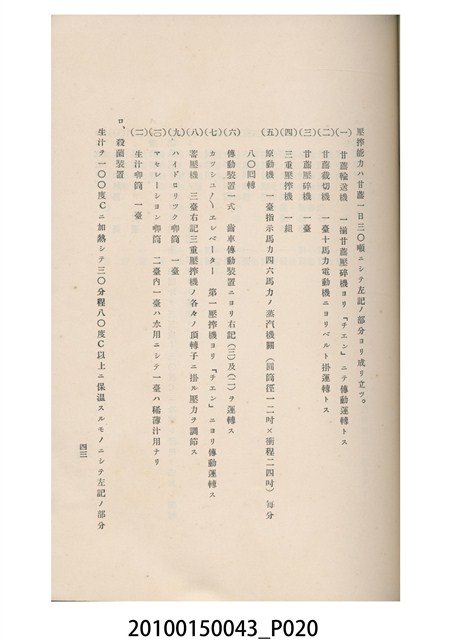 壓搾能力ハ甘蔗一日三〇噸ニシテ左記ノ部分ヨリ成リ立ツ。
(一) 甘蔗輸送機 一揃甘蔗壓碎機ヨリ「チエン」ニテ傳動運轉トス
(二) 甘蔗裁切機 一臺十馬力電動機ニヨリベルト掛運轉トス
(三) 甘蔗壓碎機 一臺
(四) 三重壓搾機 一組
(五) 原動機 一臺指示馬力四六馬力ノ蒸汽機關(圓筒徑一二吋×衝程二四吋)每分
八〇回轉
(六) 傳動裝置一式 齒車傳動裝置ニヨリ右記(三)及(二)ヲ運轉ス
(七) カツシユ〱エレベーター 第一壓搾機ヨリ「チエン」ニヨリ傳動運轉ス
(八) 蓄壓機 三臺右記三重壓搾機ノ各々ノ頂轉子ニ掛ル壓力ヲ調節ス
(九) ハイドロリツク唧筒 一臺
(一〇) マセレーシヨン唧筒 二臺內一臺ハ水用ニシテ一臺ハ稀薄汁用ナリ
(一一) 生汁唧筒 一臺
ロ、殺菌裝置
生汁ヲ一〇〇度Cニ加熱シテ三〇分程八〇度C以上ニ保溫スルモノニシテ左記ノ部分
四三
20100150043_P020